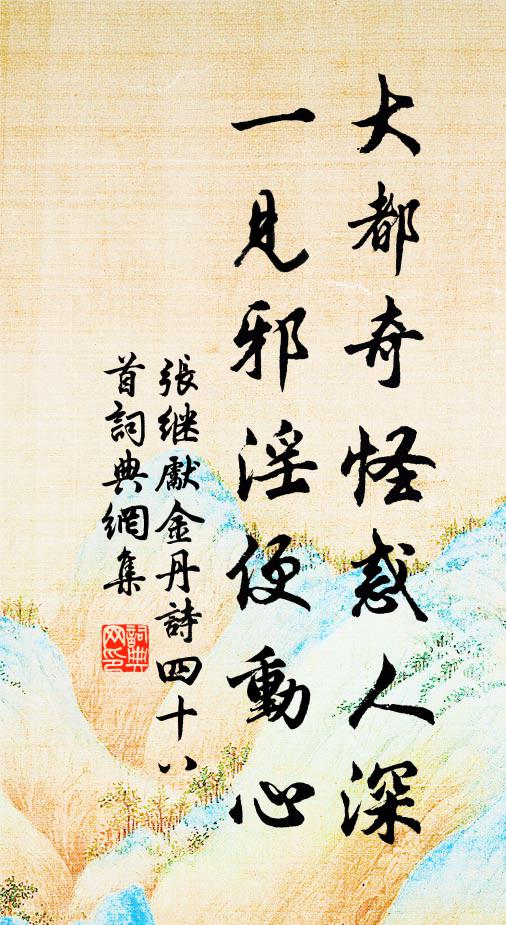 大都奇怪惑人深
一見邪淫便動心
張継獻金丹詩四十八
首詞典網集
詞典